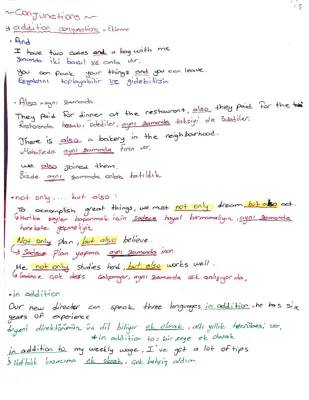 ~Conjunctions~
* addition conjunctions = Ekleme
• And
I have two cases and a bag with me
Yanımda iki bavul ve çanta var.
You can pack your things and you can leave.
Eşyalarını toplayabilir ve gidebilirsin
• Also = aynı zamanda
They paid for dinner at the restaurant, also they paid for the taxi
Restoranda hesabı ödediler, aynı zamanda taksiyi de ödediler.
There is also a bakery in the neighborhood.
Mahallede aynı zamanda fırın var.
We also joined them.
Bizde aynı zamanda onlara katıldık
• not only, ... but also :
To accomplish great things, we must not only dream, but also act.
Harika şeyler başarmak için sadece hayal kurmamalıyız, aynı zamanda
harekete geçmeliyiz.
Not only plan, but also believe.
Sadece plan yapma aynı zamanda inan.
He not only studies hard, but also works well.
Sadece çok ders çalışmıyor, aynı zamanda çok
• in addition
Our new director can speak three languages, in addition, he has six
years of experience
yeni direktörümüz üç dil biliyor ek olarak, altı yıllık tecrübesi var.
* in addition to: bir şeye ek olarak
in addition to my weekly wage, I've got a lot of tips
Haftalık kazancıma ek olarak, çok bahşiş aldım